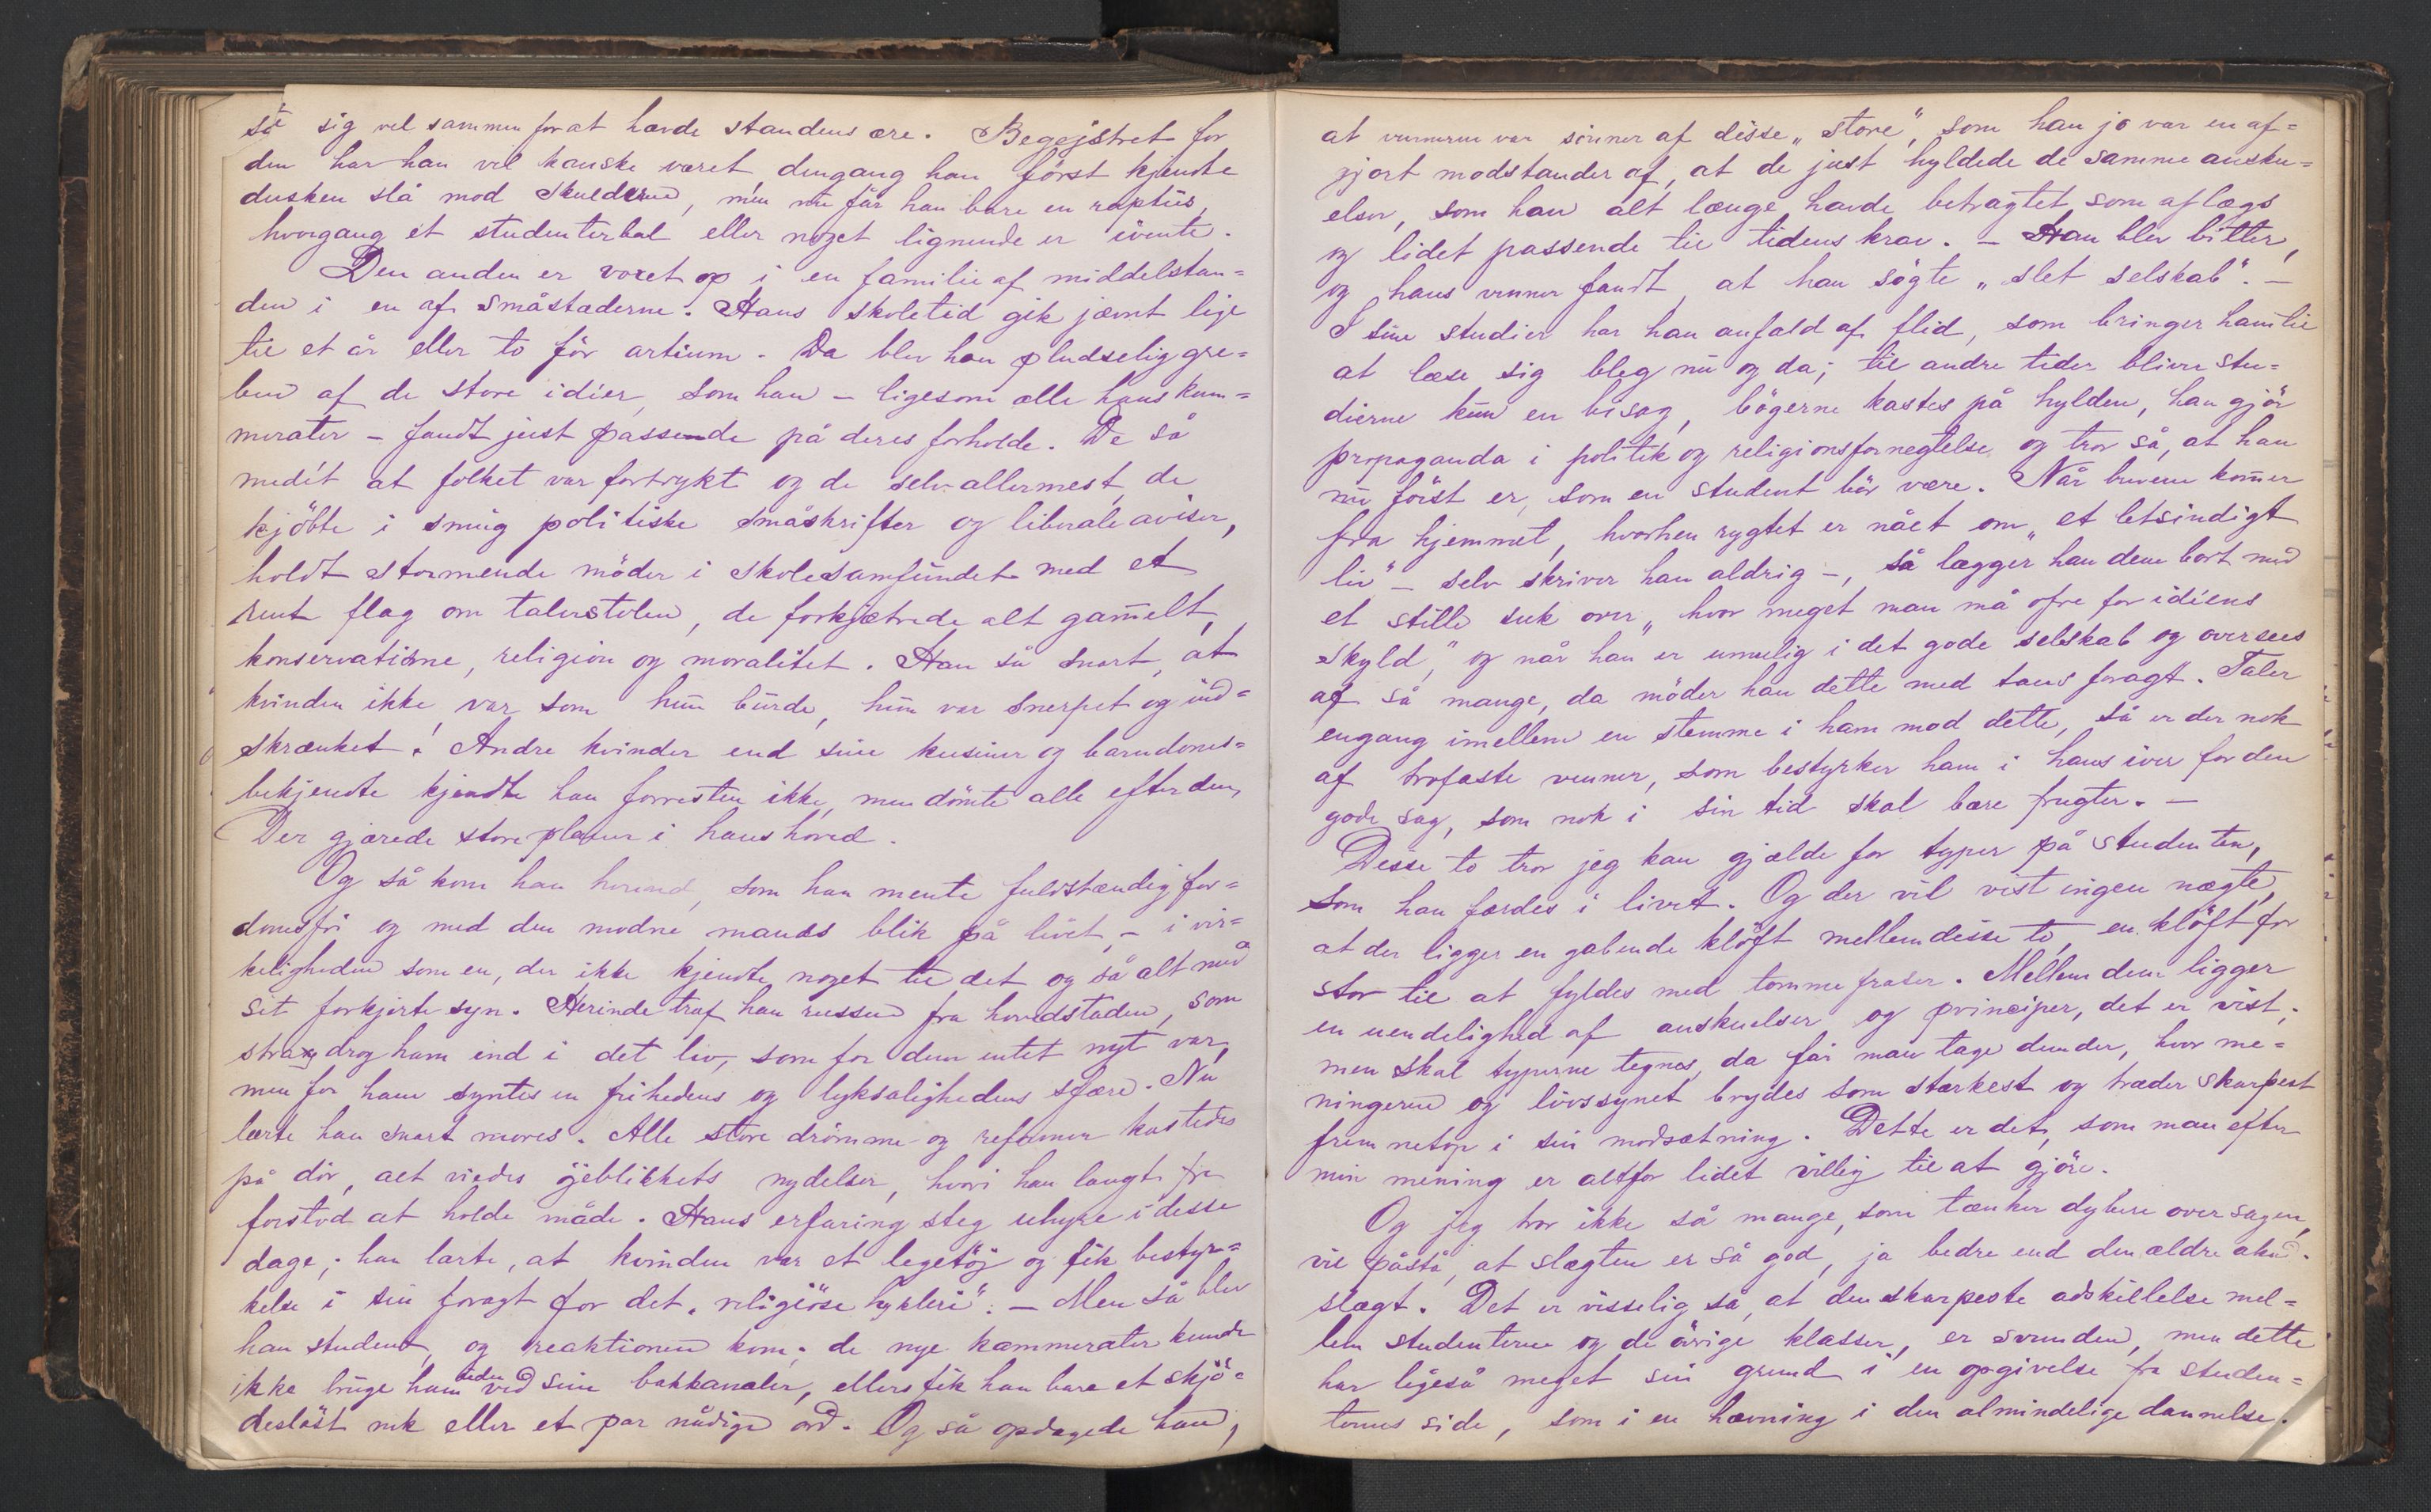 sig vel sammen for at hævde standens ære. Begejstret for
den har han vel kanske været, dengang han först kjendte
dusken slå mod skulderen, men nu får han bare en raptus,
hvergang et studenterbal eller noget lignende er ivente.
Den anden er voxet op i en familie af middelstan-
den i en af småstæderne. Hans skoletid gik jævnt lige
til et år eller to för artium. Da blev han pludselig gre-
ben af de store idéer, som han – ligesom alle hans kam-
merater – fandt just passende på deres forholde. De så
medét at folket var fortrykt og de selv allermest, de
kjöbte i smug politiske småskrifter og liberale aviser,
holdt stormende möder i skolesamfundet med et
rent flag om talerstolen, de forkjætrede alt gam̄elt,
konservatisme, religion og moralitet. Han så snart, at
kvinden ikke var som hun burde, hun var snerpet og ind-
skrænket! Andre kvinder end sine kusiner og barndoms-
bekjendte kjendte han forresten ikke, men dömte alle efter dem,
Der gjærede store planer i hans hoved.
Og så kom han herind, som han mente fuldstændig for-
domsfri og med den modne mands blik på livet, – i vir-
keligheden som en, der ikke kjendte noget til det og så alt med
sit forkjerte syn. Herinde traf han russen fra hovedstaden, som
strax drog ham ind i det liv, som for dem intet nyt var,
men for ham syntes en frihedens og lyksalighedens sfære. Nu
lærte han snart mores. Alle store drömme og reformer kastedes
på dör, alt viedes öjeblikkets nydelser, hvori han langt fra
forstod at holde måde. Hans erfaring steg uhyre i desse
dage; han lærte, at kvinden var et legetöj og fik bestyr-
kelse i sin foragt for det „religiöse hykleri“. – Men så blev
han student, og reaktionen kom; de nye kammerater kunde
ikke bruge ham uden ved sine bakkanaler, ellers fik han bare et skjö-
deslöst nik eller et par nådige ord. Og så opdagede han,
at vennerne var sönner af disse „store“, som han jo var en af-
gjort modstander af, at de just hyldede de samme ansku-
elser, som han alt længe havde betragtet som aflægs
og lidet passende til tidens krav. – Han blev bitter,
og hans venner fandt, at han sögte „slet selskab“. –
I sine studier har han anfald af flid, som bringer ham til
at læse sig bleg nu og da; til andre tider blive stu-
dierne kun en bisag, bögerne kastes på hylden, han gjör
propaganda i politik og religionsfornegtelse og tror så, at han
nu först er, som en student bör være. Når brevene kom̄er
fra hjemmet, hvorhen rygtet er nået om „et letsindigt
liv“ – selv skriver han aldrig –, så lægger han dem bort med
et stille suk over „hvor meget man må ofre for idéens
skyld,“ og når han er umulig i det gode selskab og oversees
af så mange, da möder han dette med taus foragt. Taler
engang imellem en stemme i ham mod dette, så er der nok
af trofaste venner, som bestyrker ham i hans iver for den
gode sag, som nok i sin tid skal bære frugter. –
Disse to tror jeg kan gjælde for typer på studenten,
som han færdes i livet. Og der vil vist ingen nægte,
at der ligger en gabende klöft mellem disse to, en klöft for
stor til at fyldes med tomme fraser. Mellem dem ligger
en uendelighed af anskuelser og principer, det er vist;
men skal typerne tegnes, da får man tage dem der, hvor me-
ningerne og livssynet brydes som stærkest og træder skarpest
frem netop i sin modsætning. Dette er det, som man efter
min mening er altfor lidet villig til at gjöre.
Og jeg tror ikke så mange, som tænker dybere over sagen,
vil påstå, at slægten er så god, ja bedre end den ældre akad.
slægt. Det er visselig så, at den skarpeste adskillelse mel-
lem studenterne og de övrige klasser, er svunden, men dette
har ligeså meget sin grund i en opgivelse fra studen-
ternes side, som i en hævning i den almindelige dannelse.